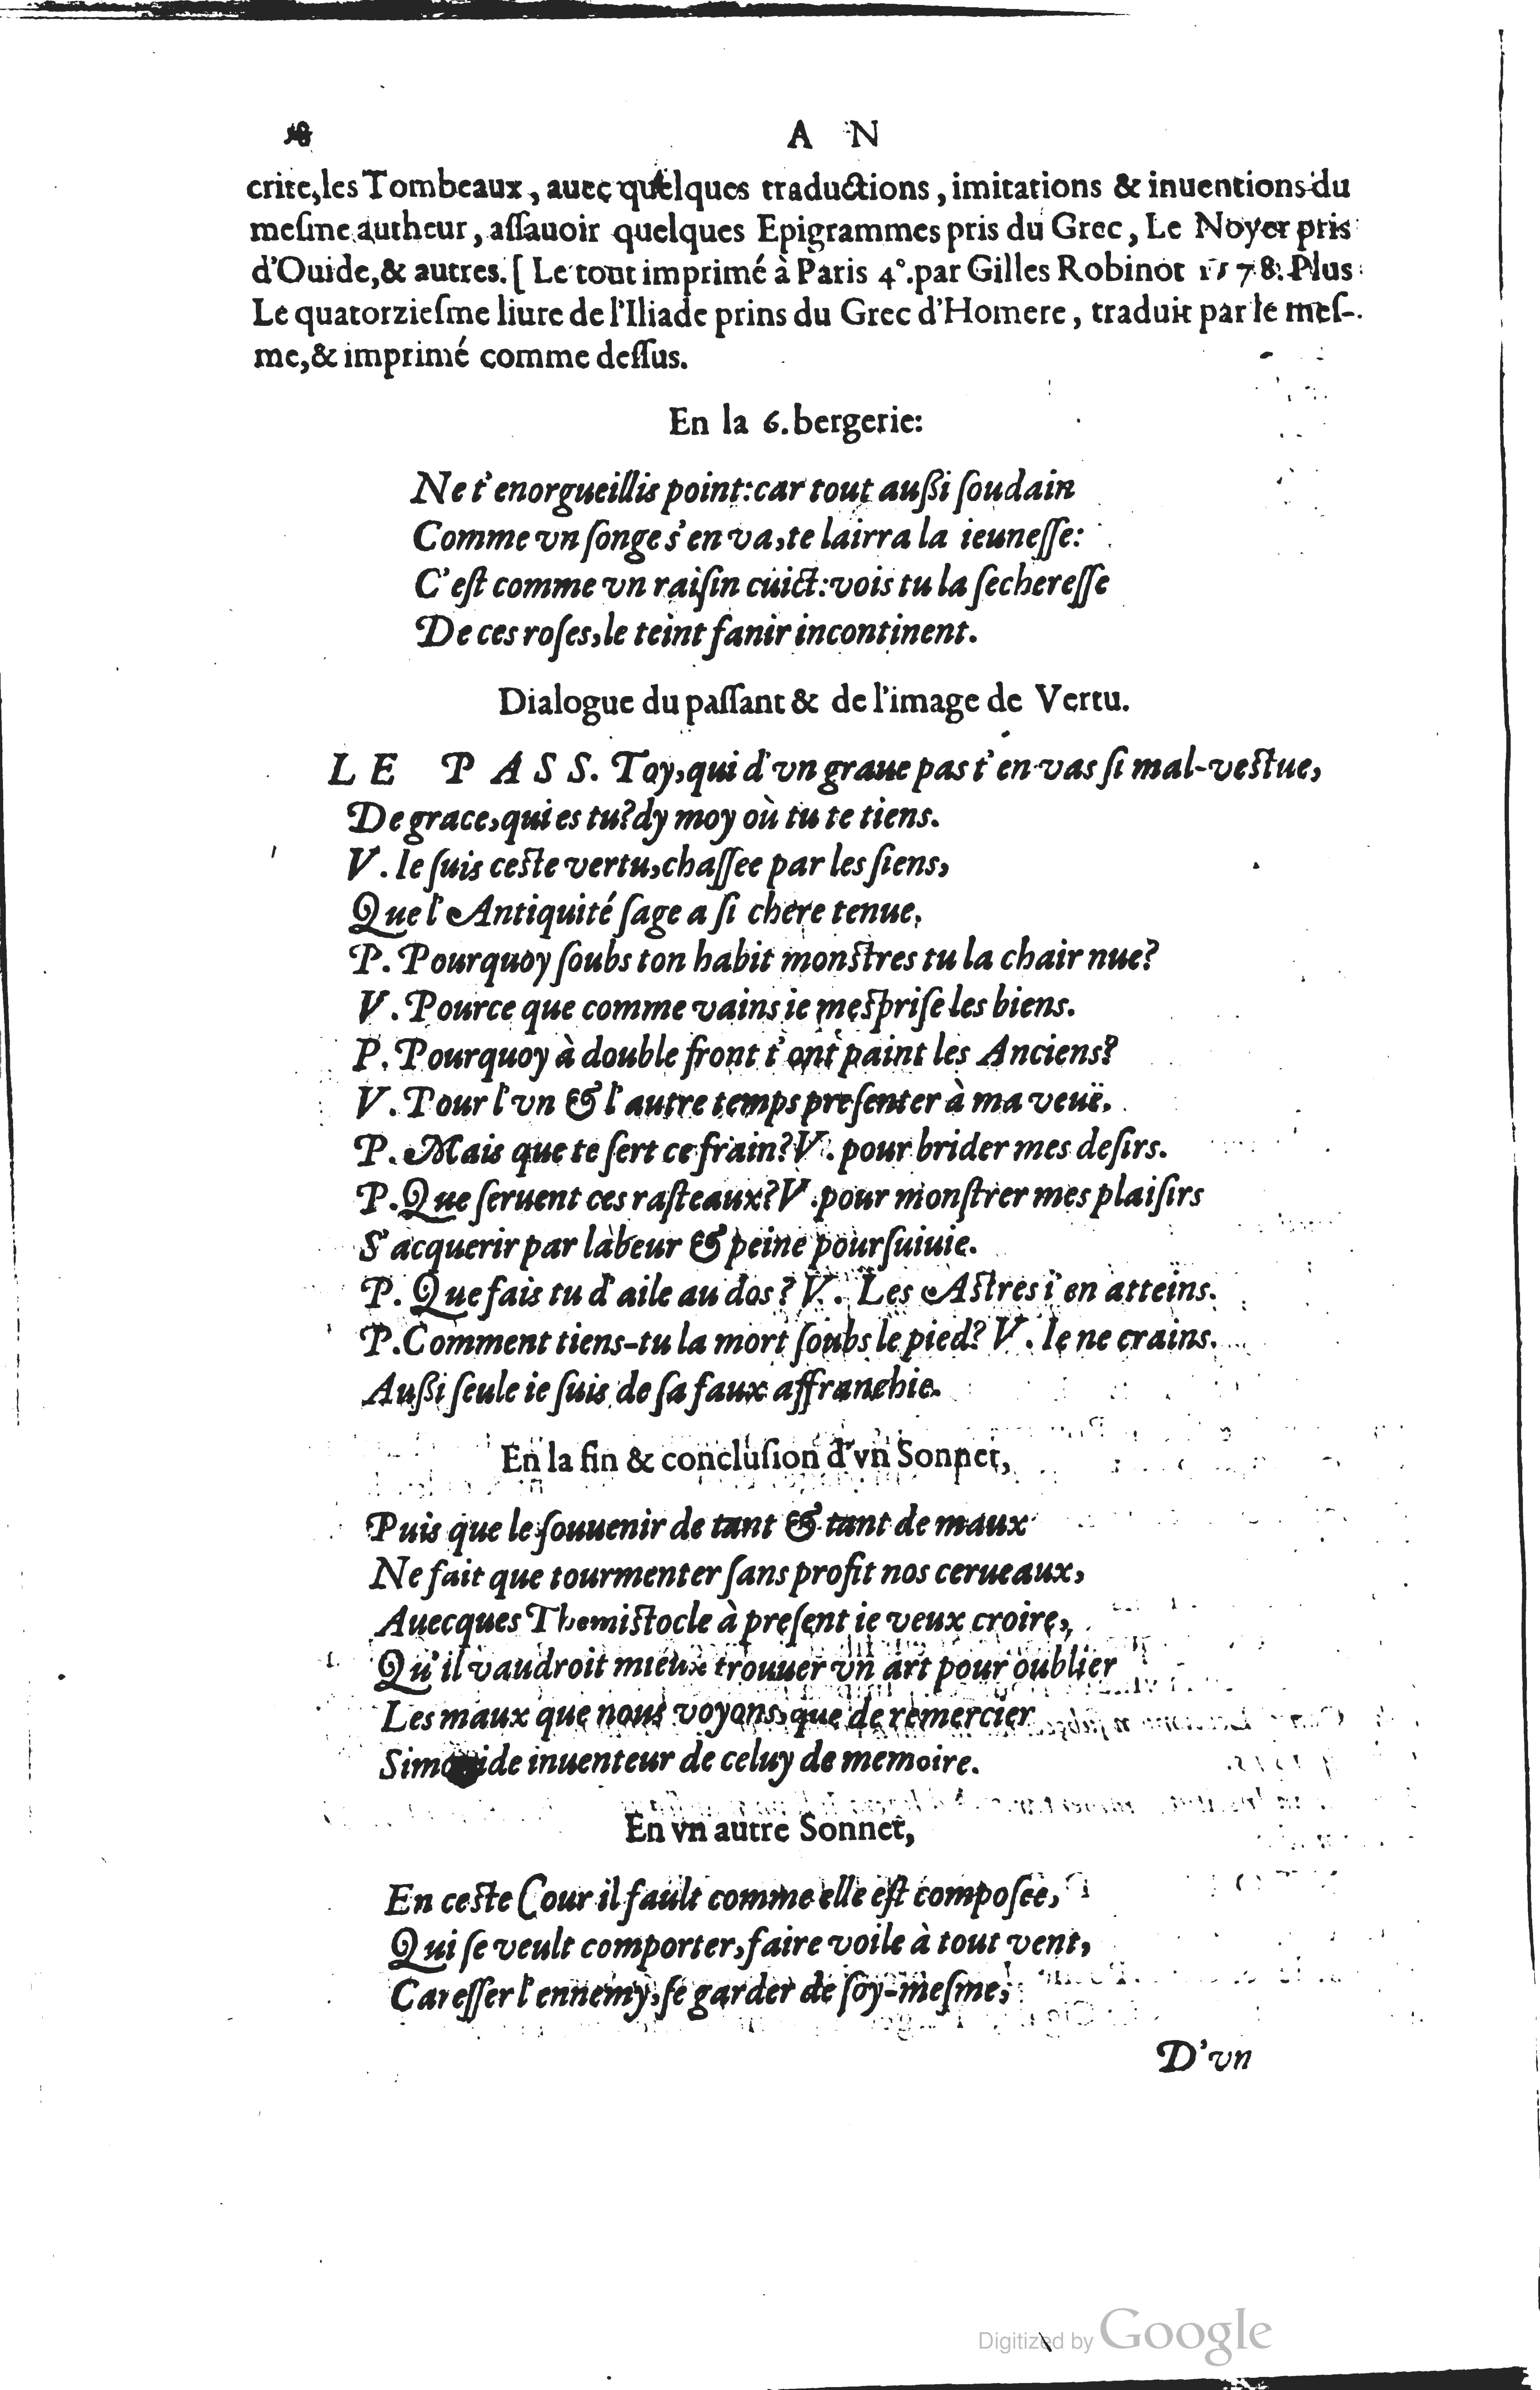 18 A N
crite, les Tombeaux, auec quelques traductions, imitations & inuentions du
meſme autheur, aſſauoir quelques Epigrammes pris du Grec, Le Noyer pris
d'Ouide, & autres. [ Le tout imprimé à Paris 4°. par Gilles Robinot 1578. Plus
Le quatorzieſme liure de l'Iliade prins du Grec d'Homere, traduit par le meſ-
me, & imprimé comme deſſus.
En la 6. bergerie:
Ne t'enorgueillis point: car tout außi ſoudain
Comme vn ſonge s'en va, te lairra la ieuneſſe:
C'eſt comme vn raiſin cuict: vois tu la ſechereſſe
De ces roſes, le teint fanir incontinent.
Dialogue du paſſant & de l'image de Vertu.
LE PASS. Toy, qui d'vn graue pas t'en-vas ſi mal-veſtue,
De grace, qui es tu? dy moy où tu te tiens.
V. Ie ſuis ceſte vertu, chaſſee par les ſiens,
Que l'Antiquité ſage a ſi chere tenue,
P. Pourquoy ſoubs ton habit monſtres tu la chair nue?
V. Pource que comme vains ie meſpriſe les biens.
P. Pourquoy à double front t'ont paint les Anciens?
V. Pour l'vn & l'autre temps preſenter à ma veuë.
P. Mais que te ſert ce frain? V. pour brider mes deſirs.
P. Que ſeruent ces raſteaux? V. pour monſtrer mes plaiſirs
S'acquerir par labeur & peine pourſuiuie.
P. Que fais tu d'aile au dos? V. Les Aſtres i'en atteins.
P. Comment tiens-tu la mort ſoubs le pied? V. Ie ne crains.
Außi ſeule ie ſuis de ſa faux affranchie.
En la fin & concluſion d'vn Sonnet,
Puis que le ſouuenir de tant & tant de maux
Ne fait que tourmenter ſans profit nos cerueaux,
Auecques Themiſtocle à preſent ie veux croire,
Qu'il vaudroit mieux trouuer vn art pour oublier
Les maux que nous voyons, que de remercier
Simonide inuenteur de celuy de memoire.
En vn autre Sonnet,
En ceſte Cour il fault comme elle eſt compoſee,
Qui ſe veult comporter, faire voile à tout vent,
Careſſer l'ennemy, ſe garder de ſoy-meſme,
D'vn
Digitized by Google